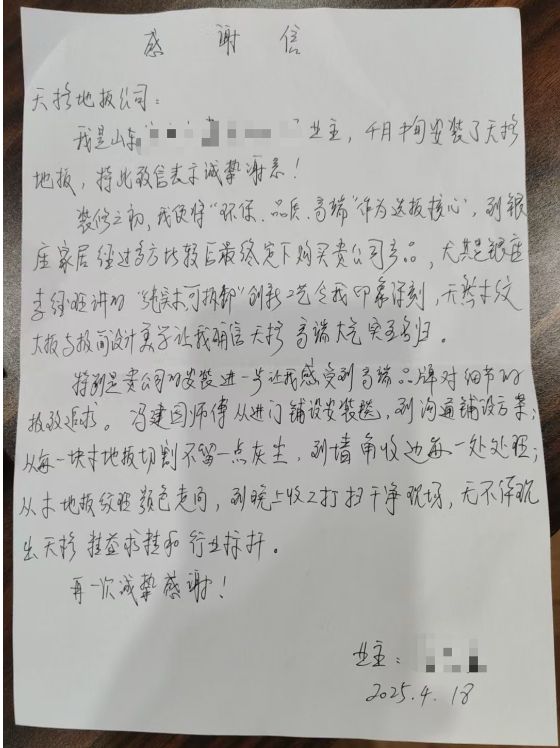 感谢信
天格地板公司：
我是山东 业主，4月中旬安装了天格
地板，特此致信表示诚挚谢意！
装修之初，我便将“环保、品质、高端”作为选板核心，到银
座家居经过多方比较后最终定下购买贵公司产品，尤其是银座
李经理讲的“纯实木可拆卸”创新工艺令我印象深刻，天然木纹
大板与极简设计美学让我确信天格高端大气实至名归。
特别是贵公司的安装进一步让我感受到高端品牌对细节的
极致追求。冯建国师傅从进门铺设安装毯，到沟通铺设方案；
从每一块木地板切割不留一点灰尘，到墙角收边每一处处理；
从木地板纹理颜色走向，到晚上收工打扫干净现场，无不体现
出天格精益求精和行业标杆。
再一次诚挚感谢！
业主：
2025.4.18